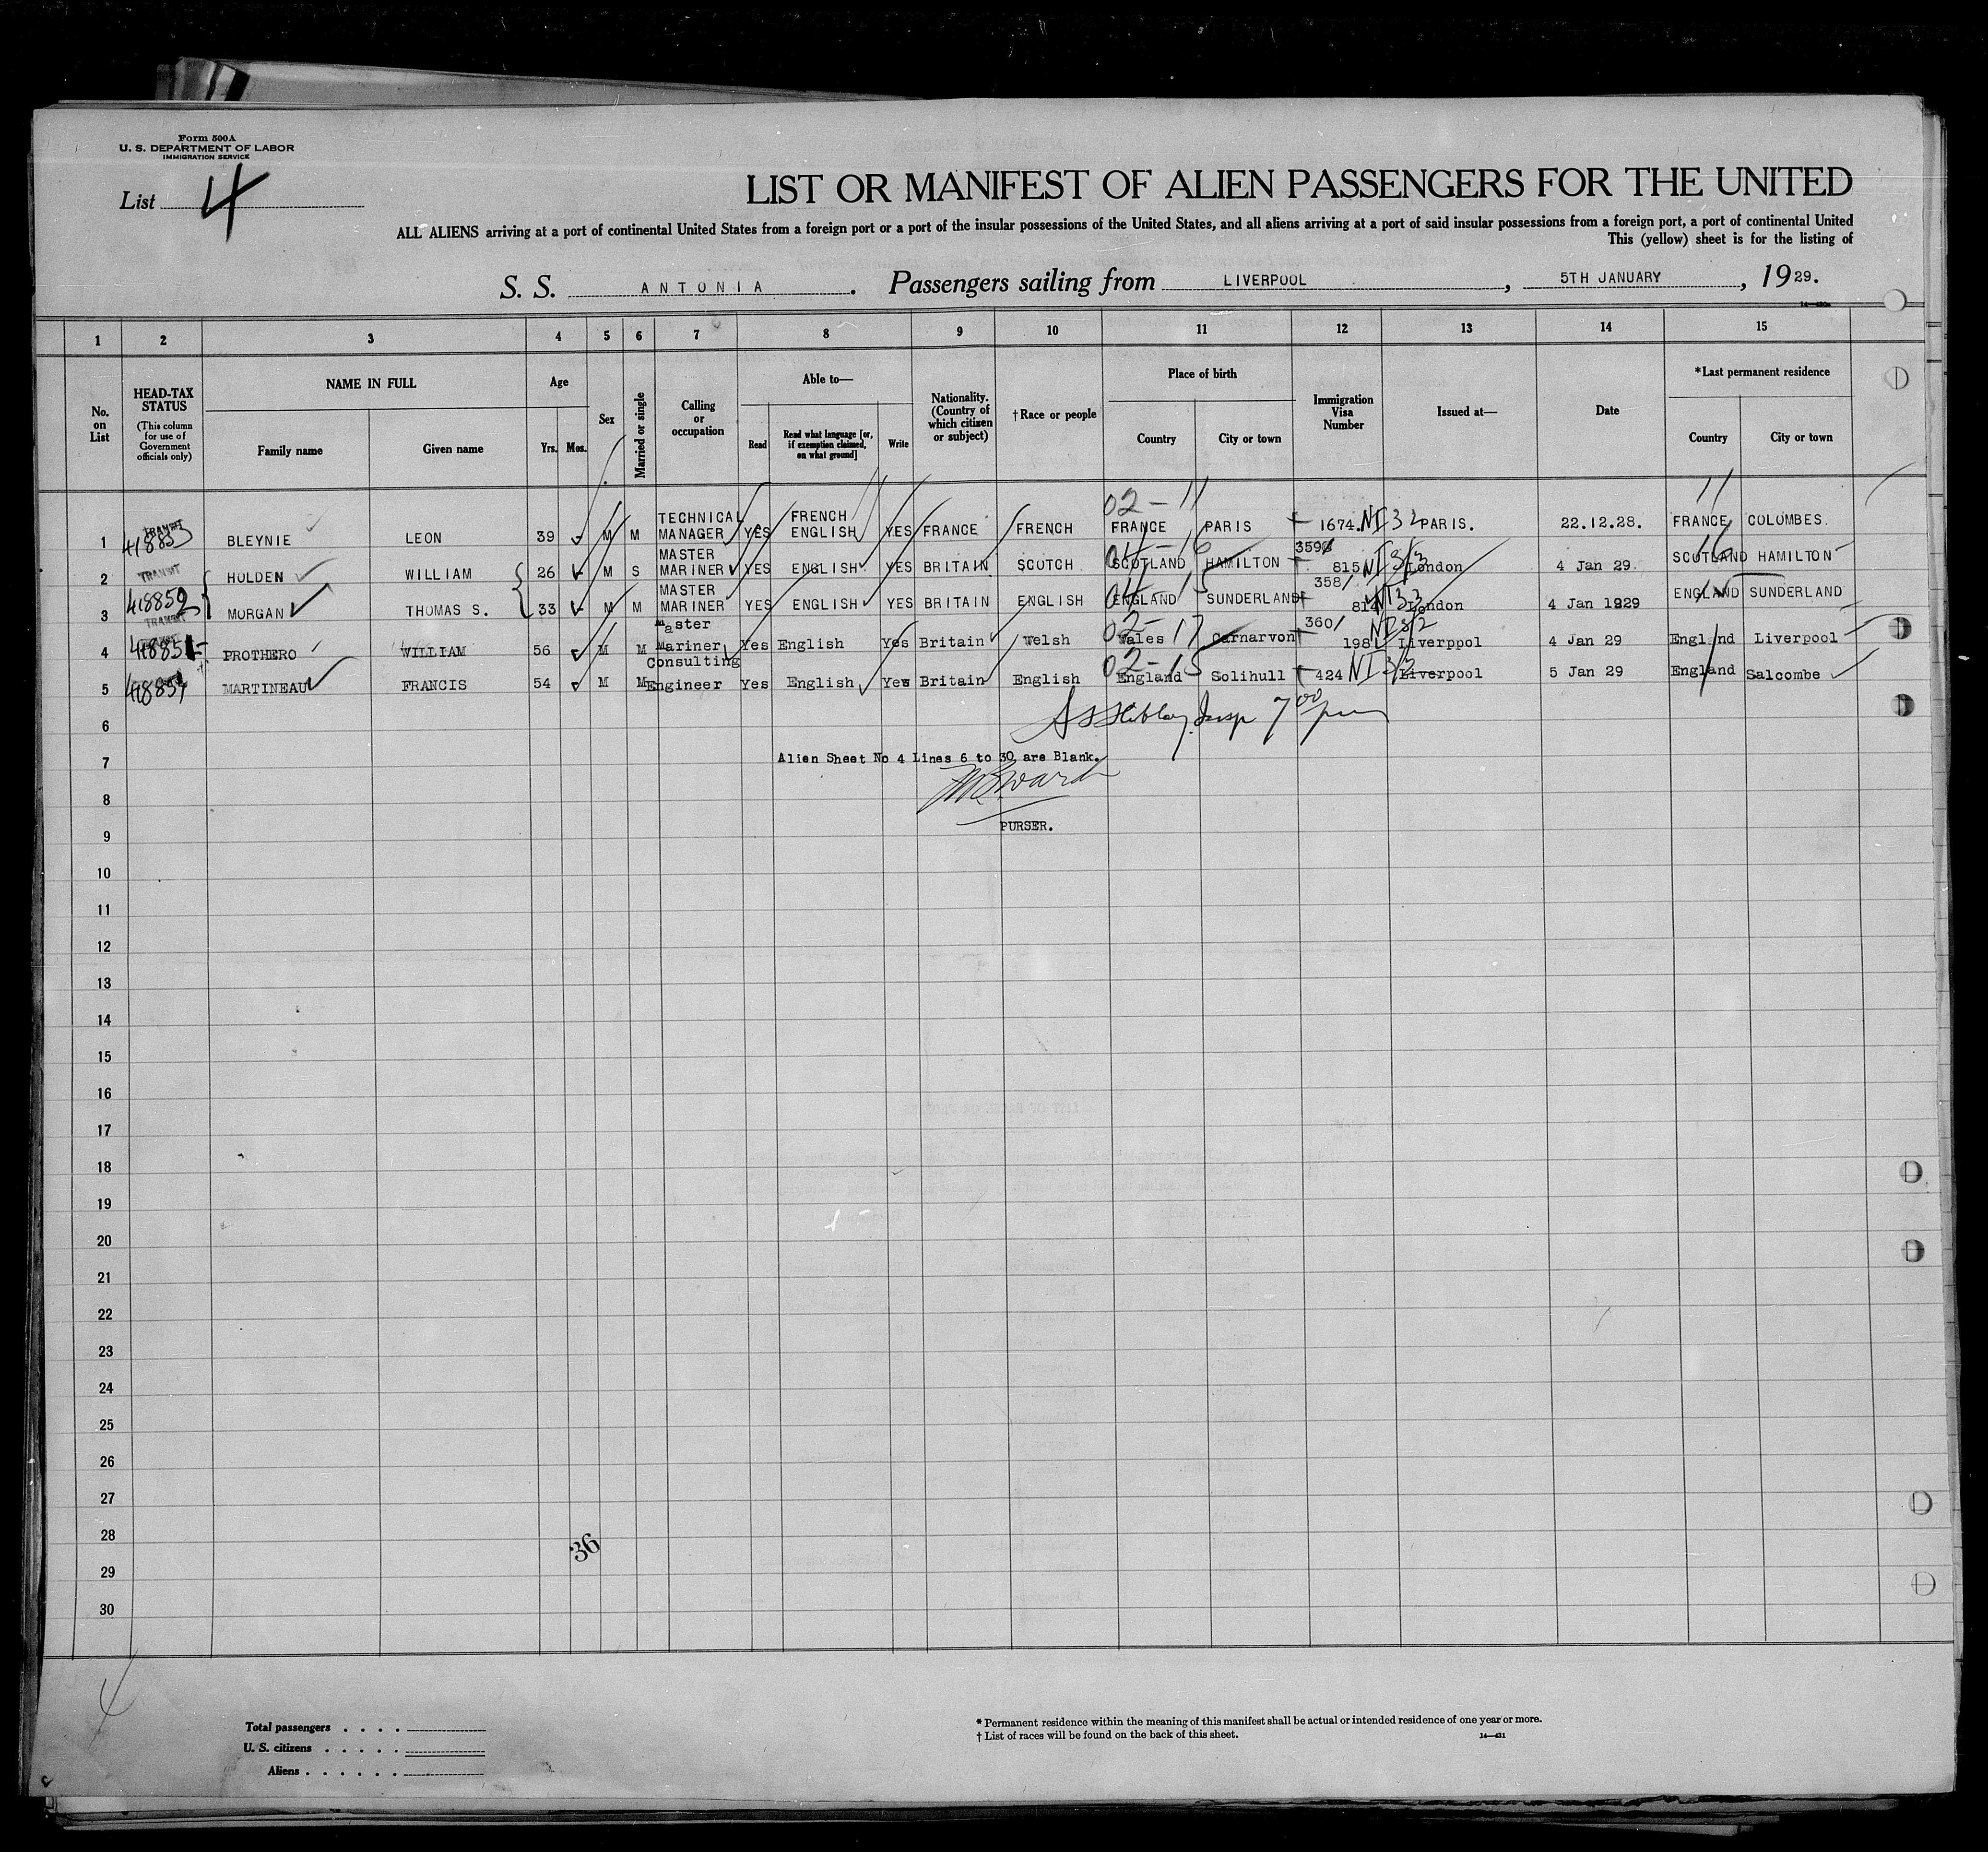 Form 500A
U. S. DEPARTMENT OF LABOR
IMMIGRATION SERVICE
List 4
LIST OR MANIFEST OF ALIEN PASSENGERS FOR THE UNITED
ALL ALIENS arriving at a port of continental United States from a foreign port or a port of the insular possessions of the United States, and all aliens arriving at a port of said insular possessions from a foreign port, a port of continental United
This (yellow) sheet is for the listing of
S. S. ANTONIA. Passengers sailing from LIVERPOOL, 5TH JANUARY, 1929.
1 2 3 4 5 6 7 8 9 10 11 12 13 14 15
No. on List
HEAD-TAX STATUS (This column for use of Government officials only)
NAME IN FULL
Family name Given name
Age
Yrs. Mos.
Sex
Married or single
Calling or occupation
Able to—
Read Read what language [or, if exemption claimed, on what ground] Write
Nationality. (Country of which citizen or subject)
† Race or people
Place of birth
Country City or town
Immigration Visa Number
Issued at—
Date
*Last permanent residence
Country City or town
02-11 11
1 TRANSIT 418853 BLEYNIE LEON 39 M M TECHNICAL MANAGER YES FRENCH ENGLISH YES FRANCE FRENCH FRANCE PARIS 1674. NI 32 PARIS. 22.12.28. FRANCE COLOMBES.
2 TRANSIT HOLDEN WILLIAM 26 M S MASTER MARINER YES ENGLISH YES BRITAIN SCOTCH SCOTLAND HAMILTON 815 London 4 Jan 29 SCOTLAND HAMILTON
3 418852 TRANSIT MORGAN THOMAS S. 33 M M MASTER MARINER YES ENGLISH YES BRITAIN ENGLISH ENGLAND SUNDERLAND 358/ London 4 Jan 1929 ENGLAND SUNDERLAND
4 PROTHERO WILLIAM 56 M M Master Mariner Yes English Yes Britain Welsh 02-17 Wales Carnarvon 360/ 198 Liverppol 4 Jan 29 England Liverpool
5 MARTINEAU FRANCIS 54 M M Consulting Engineer Yes English Yes Britain English 02-15 England Solihull 424 NI 3/2 Liverpool 5 Jan 29 England Salcombe
6
7 Alien Sheet No 4 Lines 6 to 30 are Blank.
8
9 PURSER.
10
11
12
13
14
15
16
17
18
19
20
21
22
23
24
25
26
27
28 36
29
30
4
Total passengers
U. S. citizens
Aliens
* Permanent residence within the meaning of this manifest shall be actual or intended residence of one year or more.
† List of races will be found on the back of this sheet.
14—431